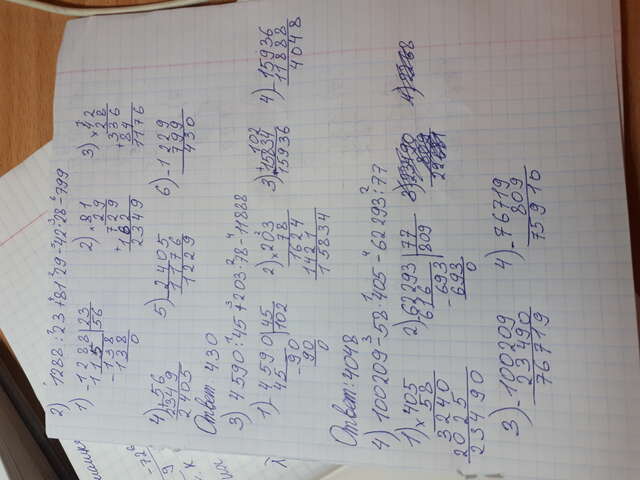 2) 1288:23+81·29-42·28-799
1) -1288 | 23 2) ×81 3) ×42
115 | 56 29 28
-138 729 336
138 +162 +84
0 2349 1176
4) +56 5) -2405 6) -1229
2349 1176 799
2405 1229 430
Ответ: 430
3) 4590:45+203·78-11888
1) -4590 | 45 2) ×203 3) +102 4) -15936
45 | 102 78 15834 11888
-90 1624 15936 4048
90 1421
0 15834
Ответ: 4048
4) 100209-58·405-62293:77
1) ×405 2) -62293 | 77
58 616 | 809
3240 -693
2025 693
23490 0
3) -100209 4) -76719
23490 809
76719 75910
-728
9